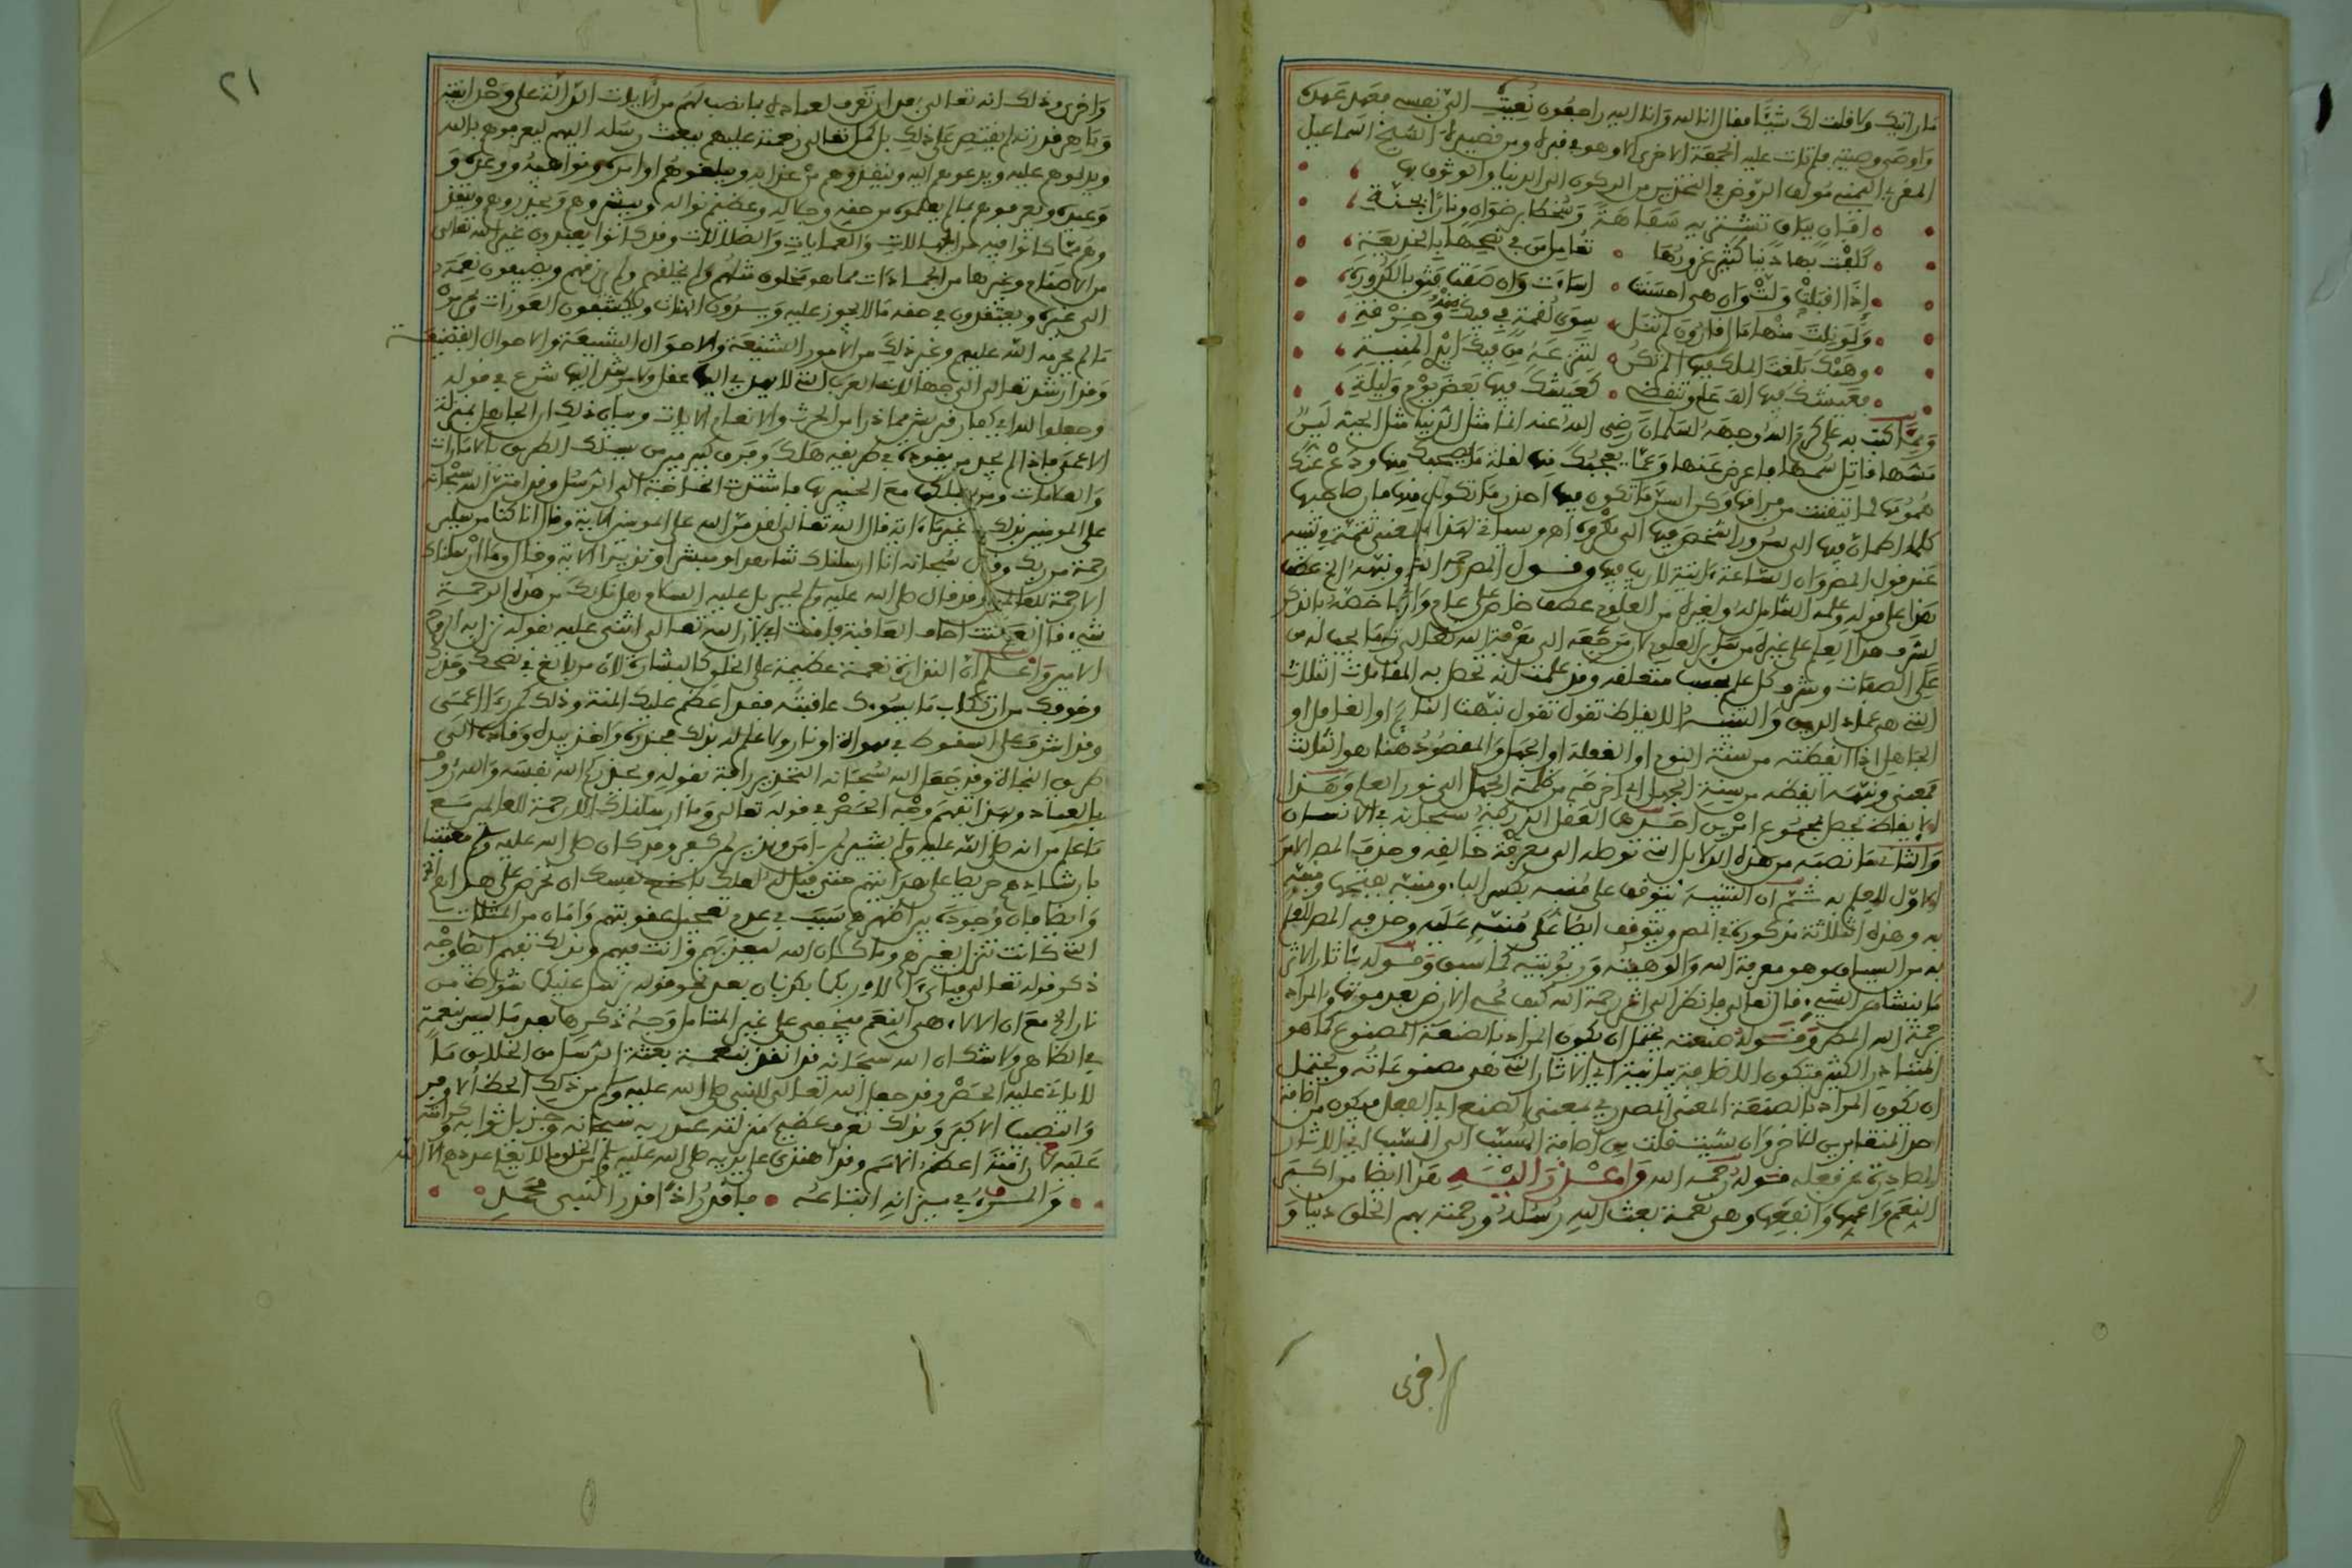 ما رايتك وما قلت لك شيئا فقال انا لله وانا اليه راجعون نُعِيَتْ الىّ نفسي فعهد عهده
واوصى وصيته فلم تات عليه الجمعة الاخرى الا وهو في قبره ومن قصيدة الشيخ اسماعيل
المقري اليمني مؤلف الروض في التحذير من الركون الى الدنيا والوثوق بها
افبان بباق تشتريه سفاهة وسخطا برضوان ونارا بجنة
كلفت بها دنيا كثير غرورها تعاملنا في نصحها بالخديعة
إذا اقبلت ولت وان هي احسنت اساءت وان صفت فثق بالكدورة
ولو نلت منها مال قارون لم تنل سوى لقمة في فيك منها وخرقة
وهبك بلغت الملك فيها الم تكن لتنزعه من فيك ايدي المنية
فعيشك فيها الف عام وتنقضي كعيشك فيها بعض يوم وليلة
ومما كتب به علي كرم الله وجهه لسلمان رضي الله عنه انما مثل الدنيا مثل الحية لين
مسها قاتل سمها فاعرض عنها وعما يعجبك فيها لقلة ما يصحبك منها ودع عنك
همومها لما تيقنت من فراقها وكن اسر ما تكون فيها احذر ما تكون منها فان صاحبها
كلما اطمان فيها الى سرور اشخص منها الى مكروه
عند قول المص وان الساعة اتية لا ريب فيها وقول المص رحمه الله ونبهه الخ عطف
لشرف هذا العلم على غيره من سائر العلوم لان مرجعه الى معرفة الله تعالى وما يجب له من
على الصفات وشرف كل علم بحسب متعلقه وقد علمت انه تحصل به المقامات الثلاث
التي هي عماد الدين والتنبيه الايقاظ تقول نبهت النائم او الغافل او
الجاهل اذا ايقظته من سنة النوم او الغفلة او الجهل والمقصود هنا هو الثالث
فمعنى ونبهه ايقظه من سنة الجهل اي اخرجه من ظلمة الجهل الى نور العلم وهذا
الايقاظ يحصل بمجموع امرين احدهما العقل الذي ركبه سبحانه في الانسان
والثاني ما نصبه من هذه الدلايل التي توصله الى معرفة خالقه وحذف المص الامر
الاول للعلم به ثم ان التنبيه يتوقف على منبه بكسر الباء ومنبه بفتحها ومنبه
به وهذه الثلاثة مذكورة في المص ويتوقف ايضا على منبه عليه وحذفه المص للعلم
به من السياق وهو معرفة الله والوهيته وربوبيته كما سبق وقوله باثار الاثر
ما ينشا من الشيء قال تعالى فانظر الى اثر رحمة الله كيف يحيي الارض بعد موتها والمراد
رحمة الله المطر وقوله صنعته يحتمل ان يكون المراد بالصنعة المصنوع كما هو
المتبادر الكثير فتكون الاضافة بيانية اي الاثار التي هي مصنوعاته ويحتمل
ان يكون المراد بالصنعة المعنى المصدري بمعنى الصنع اي الفعل فيكون من اضافة
احد المتغايرين للاخر وان شيت قلت من اضافة المسبب الى السبب اي الاثار
الصادرة عن فعله قوله رحمه الله وارسل اليه هذا ايضا من اكبر
النعم واعمها وانفعها وهي نعمة بعث الله رسله ورحمته بهم الخلق دنيا و
اخرى
٢١
واخرى وذلك انه تعالى بعد ان تعرف لعباده بما نصب لهم من الايات الدالة على وحدانيته
وباهر قدرته لم يقتصر على ذلك بل كمل تعالى نعمته عليهم ببعث رسله اليهم ليعرفوهم بالله
ويدلوهم عليه ويدعوهم اليه وينقذوهم من عذابه ويبلغوهم اوامره ونواهيه ووعده و
وعيده ويعرفوهم بما لم يعلموه من حقه وجماله وعظيم نواله ويبشروهم ويحذروهم وينقذ
وهم مما كانوا فيه من الجهالات والعمايات والضلالات وقد كانوا يعبدون غير الله تعالى
من الاصنام وغيرها من الجمادات مما هو مخلوق مثلهم ولم يخلقهم ولم يرزقهم ويضيفون نعمته
الى غيره ويعتقدون في حقه ما لا يجوز عليه ويكشفون العورات
ما لم يحرمه الله عليهم وغير ذلك من الامور الشنيعة والاحوال الفظيعة
وجعلوا لله اي كفار قريش مما ذرا من الحرث والانعام الايات وبيان ذلك ان الجاهل بمنزلة
الاعمى فاذا لم يجد من يقوده في طريقه هلك وفرق كبير بين من يسلك الطريق بالامارات
والعلامات ومن يسلكها مع الخبير بها فاشتدت الحاجة الى الرسل وقد امتن الله سبحانه
على المومنين بذلك في غير ما اية قال الله تعالى لقد من الله على المومنين الاية وقال انا كنا مرسلين
رحمة من ربك وقال سبحانه انا ارسلناك شاهدا ومبشرا ونذيرا الاية وقال وما ارسلناك
الا رحمة للعالمين وقد قال صلى الله عليه وسلم لجبريل عليه السلام هل نالك من هذه الرحمة
شيء قال نعم كنت اخاف العاقبة فامنت اي لان الله تعالى اثنى علي بقوله نزل به الروح
الامين واعلم ان النذارة نعمة عظيمة على الخلق كالبشارة لان من بالغ في نصحك
وخوفك من ارتكاب ما يسوءك عاقبته فقد اعظم عليك المنة وذلك كمن راى اعمى
وقد اشرف على السقوط في مهواة او نار ولا علم له بذلك فحذره واخذ بيده وقاده الى
طريق النجاة وقد جعل الله سبحانه التحذير رافة بقوله ويحذركم الله نفسه والله رءوف
بالعباد وبهذا تفهم وجه الحصر في قوله تعالى وما ارسلناك الا رحمة للعالمين مع
ما علم من انه صلى الله عليه وسلم بشير لمن امن ونذير لمن كفر وقد كان صلى الله عليه وسلم معتنيا
بارشادهم حريصا على هدايتهم حتى قيل له لعلك باخع نفسك ان تحرص على هداهم
وايضا فان وجوده بين اظهرهم سبب في عدم تعجيل عقوبتهم وامان من المثلات
التي كانت تنزل بغيرهم وما كان الله ليعذبهم وانت فيهم وبذلك تفهم ايضا وجه
ذكر قوله تعالى فباي الاء ربكما تكذبان بعد نحو قوله يرسل عليكما شواظ من
نار الخ مع ان الالاء هي النعم فيخفى على غير المتامل وجه ذكرها بعد ما ليس بنعمة
في الظاهر ولا شك ان الله سبحانه قد انقذ بنعمة بعثة الرسل من الخلايق ما
لا ياتي عليه الحصر وقد جعل الله تعالى للنبي صلى الله عليه وسلم من ذلك الحظ الاوفر
والنصيب الاكبر وبذلك تعرف عظيم منزلته عند ربه سبحانه وجزيل ثوابه وكرامته
عليه لان امته اعظم الامم وقد اهتدى على يديه صلى الله عليه وسلم من الخلق ما لا يعلم عددهم الا الله
والمرء في ميزانه اتباعه فاقدر اذًا قدر النبي محمد